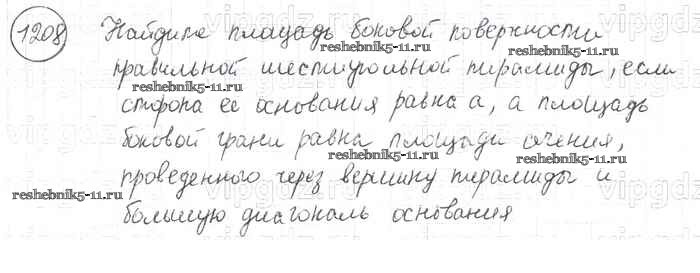 1208 Найдите площадь боковой поверхности
reshebnik5-11.ru reshebnik5-11.ru
правильной шестиугольной пирамиды, если
reshebnik5-11.ru
сторона ее основания равна а, а площадь
боковой грани равна площади сечения,
reshebnik5-11.ru reshebnik5-11.ru
проведенного через вершину пирамиды и
reshebnik5-11.ru
большую диагональ основания